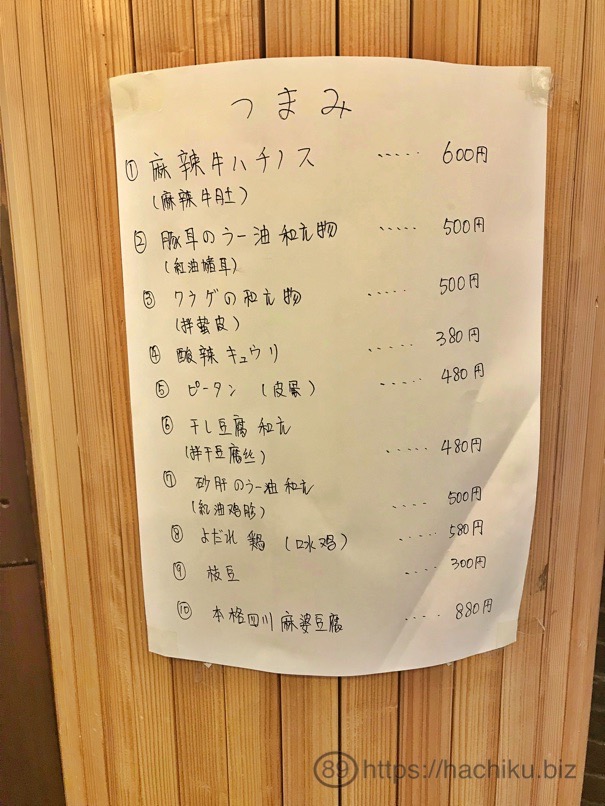 つまみ
① 麻辣牛ハチノス ····· 600円
(麻辣牛肚)
② 豚耳のラー油和え物 ····· 500円
(紅油猪耳)
③ クラゲの和え物 ····· 500円
(拌蜇皮)
④ 酸辣キュウリ ····· 380円
⑤ ピータン (皮蛋) ····· 480円
⑥ 干し豆腐和え
(拌干豆腐丝) ····· 480円
⑦ 砂肝のラー油和え
(紅油鸡胗) ···· 500円
⑧ よだれ鶏 (口水鸡) ····· 580円
⑨ 枝豆 ···· 300円
⑩ 本格四川麻婆豆腐 ····· 880円
89 https://hachiku.biz